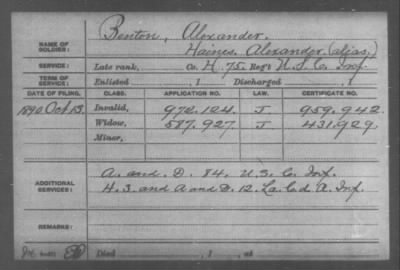 Benton, Alexander.
NAME OF SOLDIER: Haines, Alexander (alias,)
SERVICE: Late rank, Co. H. 75. Reg't U.S.C. Inf.
TERM OF SERVICE: Enlisted , 1 Discharged , 1
DATE OF FILING. CLASS. APPLICATION NO. LAW. CERTIFICATE NO.
1890 Oct 13. Invalid, 972.124. J. 959.942.
Widow, 587.927. J 431.929.
Minor,
A. and. D. 84. U.S.C. Inf.
ADDITIONAL SERVICES: H. 3. and A and D. 12. La. C. d A. Inf.
REMARKS:
Died , 1 , at